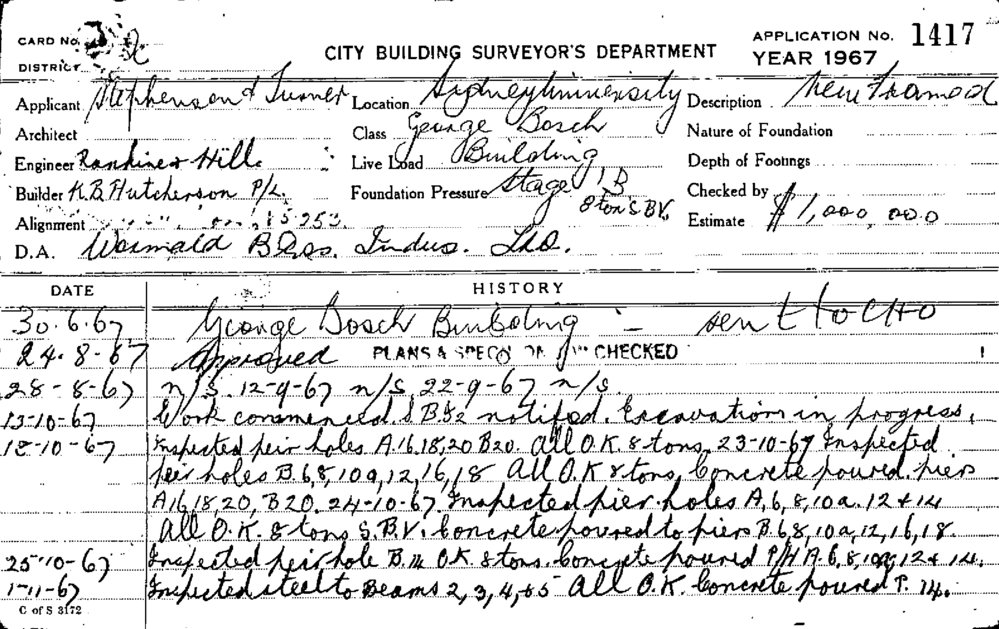 CARD No.
DISTRICT
CITY BUILDING SURVEYOR'S DEPARTMENT
APPLICATION No. 1417
YEAR 1967
Applicant Stephenson & Turner Location Sydney University Description New Framed
Architect Class George Bosch Nature of Foundation
Engineer Rankine & Hill. Live Load Building Depth of Footings
Builder K.B. Hutcherson P/L. Foundation Pressure Stage 1B 8 tons B.V. Checked by
Alignment Estimate $1,000,000
D.A. Wormald Bros. Indus. Ltd.
DATE HISTORY
30.6.67 George Bosch Building - sent to CHO
24.8-67 Approved PLANS & SPECN CHECKED
28-8-67 n/s. 12-9-67 n/s. 22-9-67 n/s.
13-10-67 Work commenced. notified. Excavation in progress.
18-10-67 Inspected peir holes A.16.18,20 B20. All O.K. 8 tons. 23-10-67 Inspected
peir holes B.6,8,10a,12,16,18 All O.K 8 tons. Concrete poured piers
A16,18,20, B20. 24-10-67. Inspected pier holes A,6,8,10a.12 & 14
All O.K. 8 tons S.B.V. Concrete poured to piers B.6,8,10a,12,16,18.
25-10-67 Inspected peir hole B.14 O.K 8 tons. Concrete poured P/H A.6,8,10a,12 & 14.
1-11-67 Inspected steel to Beams 2,3,4,&5 All O.K. Concrete poured P. 14.
C of S 3172